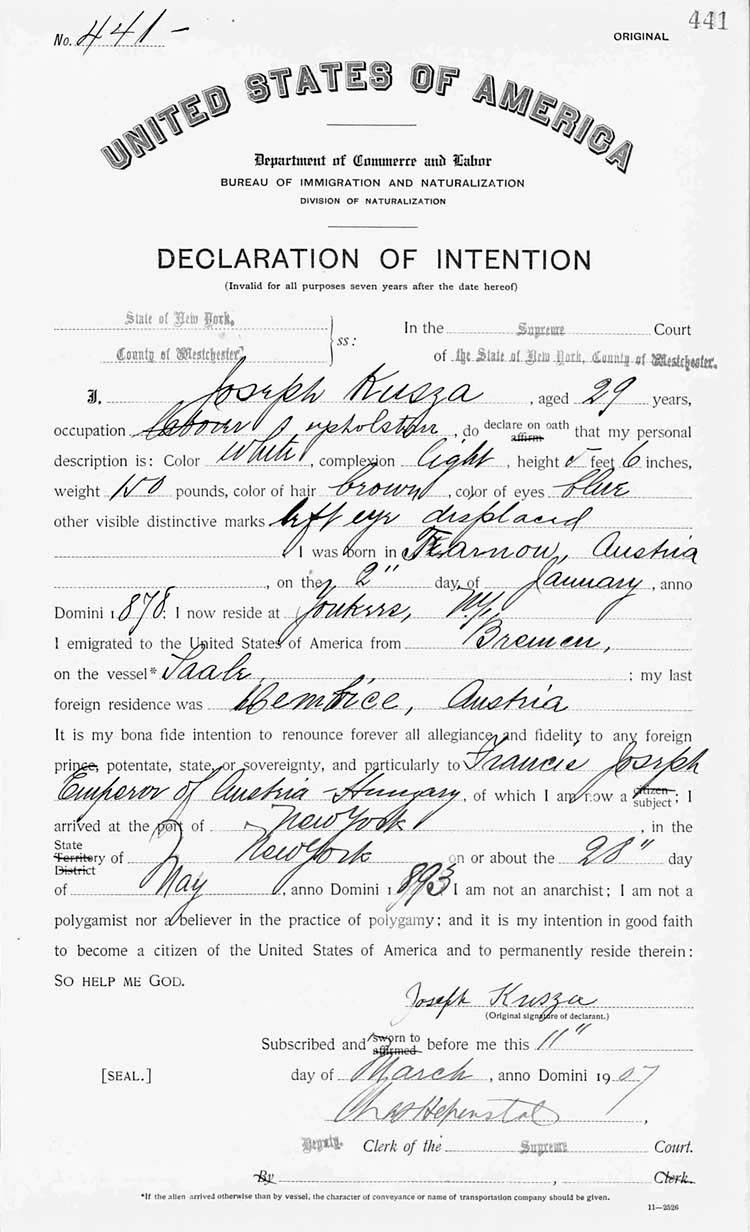 No. 441 - ORIGINAL 441
UNITED STATES OF AMERICA
Department of Commerce and Labor
BUREAU OF IMMIGRATION AND NATURALIZATION
DIVISION OF NATURALIZATION
DECLARATION OF INTENTION
(Invalid for all purposes seven years after the date hereof)
State of New York, In the Supreme Court
County of Westchester ss: of the State of New York, County of Westchester.
I, Joseph Kusza, aged 29 years,
occupation labour upholster, do declare on oath affirm that my personal
description is: Color White, complexion light, height 5 feet 6 inches,
weight 150 pounds, color of hair brown, color of eyes blue
other visible distinctive marks left eye displaced
I was born in Tarnow, Austria
, on the 2" day of January, anno
Domini 1878; I now reside at Yonkers, N.Y.
I emigrated to the United States of America from Bremen,
on the vessel* Saale; my last
foreign residence was Austria
It is my bona fide intention to renounce forever all allegiance and fidelity to any foreign
prince, potentate, state, or sovereignty, and particularly to Francis Joseph
Emperor of Austria-Hungary, of which I am now a citizen subject; I
arrived at the port of New York, in the
State Territory District of New York on or about the 28" day
of May, anno Domini 1893; I am not an anarchist; I am not a
polygamist nor a believer in the practice of polygamy; and it is my intention in good faith
to become a citizen of the United States of America and to permanently reside therein:
SO HELP ME GOD.
Joseph Kusza
(Original signature of declarant.)
Subscribed and sworn to affirmed before me this 11"
[SEAL.] day of March, anno Domini 1907
Chas Hepenstal,
Deputy Clerk of the Supreme Court.
By , Clerk.
*If the alien arrived otherwise than by vessel, the character of conveyance or name of transportation company should be given.
11—2526